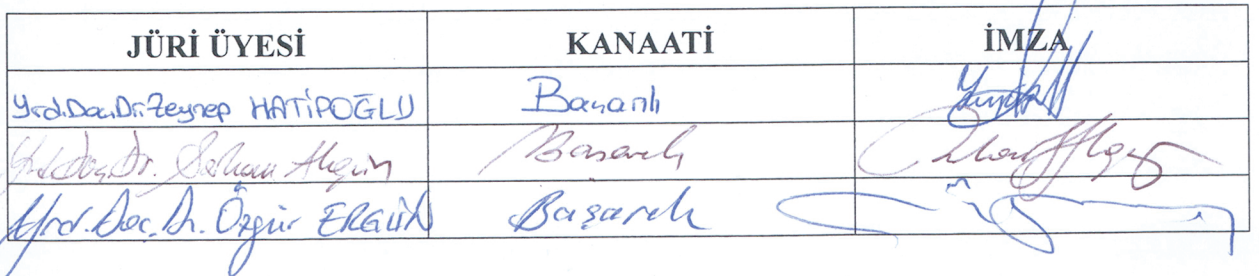 JÜRİ ÜYESİ KANAATİ İMZA
Yrd.Doç.Dr.Zeynep HATİPOĞLU Başarılı
Yrd.Doç.Dr. Başarılı
Yrd.Doç.Dr. Özgür ERGÜN Başarılı